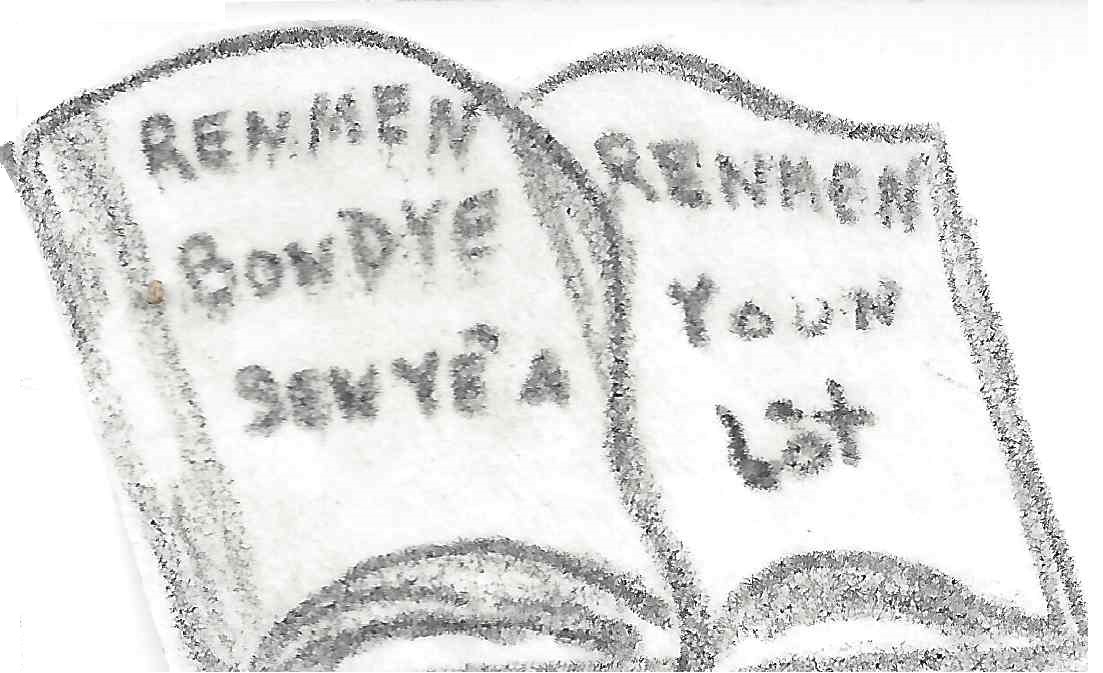 RENMEN
BONDYE
SENYÈ A
RENMEN
YOUN
Lòt